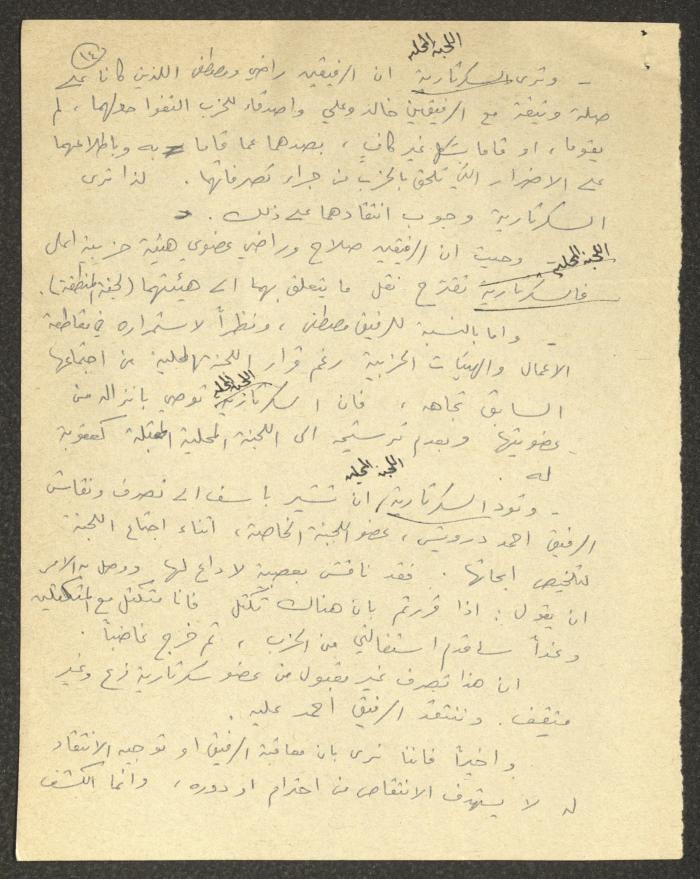 ١٤
اللجنة المحلية
- وترى السكرتارية ان الرفيقين راضي ومصطفى اللذين كانا على
صلة وثيقة مع الرفيقين خالد وعلي واصدقاء للحزب التفوا حولهما، لم
يقوما، او قاما بشكل غير كافٍ، بصدهما عما قاما به وباطلاعهما
على الاضرار التي تلحق بالحزب من جراء تصرفاتهما. لذا ترى
السكرتارية وجوب انتقادهما على ذلك.
- وحيث ان الرفيقين صلاح وراضي عضوي هيئة حزبية اعلى
اللجنة المحلية
فالسكرتارية تقترح نقل ما يتعلق بهما الى هيئتهما (لجنة المنطقة).
- واما بالنسبة للرفيق مصطفى، ونظراً لاستمراره في مقاطعة
الاعمال والهيئات الحزبية رغم قرار اللجنة المحلية من اجتماعها
اللجنة المحلية
السابق تجاهه، فان السكرتارية توصي بانزاله من
عضويتها وبعدم ترشيحه الى اللجنة المحلية المقبلة كعقوبة
له.
اللجنة المحلية
- وتود السكرتارية ان تشير باسف الى تصرف ونقاش
الرفيق احمد درويش، عضو اللجنة الخاصة، اثناء اجتماع اللجنة
لتلخيص ابحاثها. فقد ناقش بعصبية لا داع لها ووصل به الامر
ان يقول: اذا قررتم بان هناك تكتل فانا متكتل مع المتكتلين
وغداً ساقدم استقالتي من الحزب، ثم خرج غاضباً.
ان هذا تصرف غير مقبول من عضو سكرتارية فرع وغير
مثقف. وننتقد الرفيق احمد عليه.
واخيراً فاننا نرى بان معاقبة الرفيق او توجيه الانتقاد
له لا يستهدف الانتقاص من احترامه او دوره، وانما الكشف